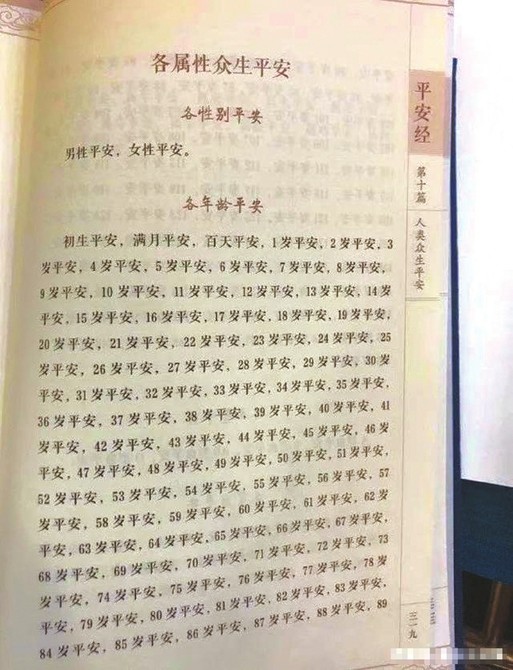 各属性众生平安
各性别平安
男性平安，女性平安。
各年龄平安
初生平安，满月平安，百天平安，1岁平安，2岁平安，3
岁平安，4岁平安，5岁平安，6岁平安，7岁平安，8岁平安，
9岁平安，10岁平安，11岁平安，12岁平安，13岁平安，14岁
平安，15岁平安，16岁平安，17岁平安，18岁平安，19岁平安，
20岁平安，21岁平安，22岁平安，23岁平安，24岁平安，25
岁平安，26岁平安，27岁平安，28岁平安，29岁平安，30岁
平安，31岁平安，32岁平安，33岁平安，34岁平安，35岁平安，
36岁平安，37岁平安，38岁平安，39岁平安，40岁平安，41
岁平安，42岁平安，43岁平安，44岁平安，45岁平安，46岁
平安，47岁平安，48岁平安，49岁平安，50岁平安，51岁平安，
52岁平安，53岁平安，54岁平安，55岁平安，56岁平安，57
岁平安，58岁平安，59岁平安，60岁平安，61岁平安，62岁
平安，63岁平安，64岁平安，65岁平安，66岁平安，67岁平安，
68岁平安，69岁平安，70岁平安，71岁平安，72岁平安，73
岁平安，74岁平安，75岁平安，76岁平安，77岁平安，78岁
平安，79岁平安，80岁平安，81岁平安，82岁平安，83岁平安，
84岁平安，85岁平安，86岁平安，87岁平安，88岁平安，89
平安经
第十篇 人类众生平安
三一九